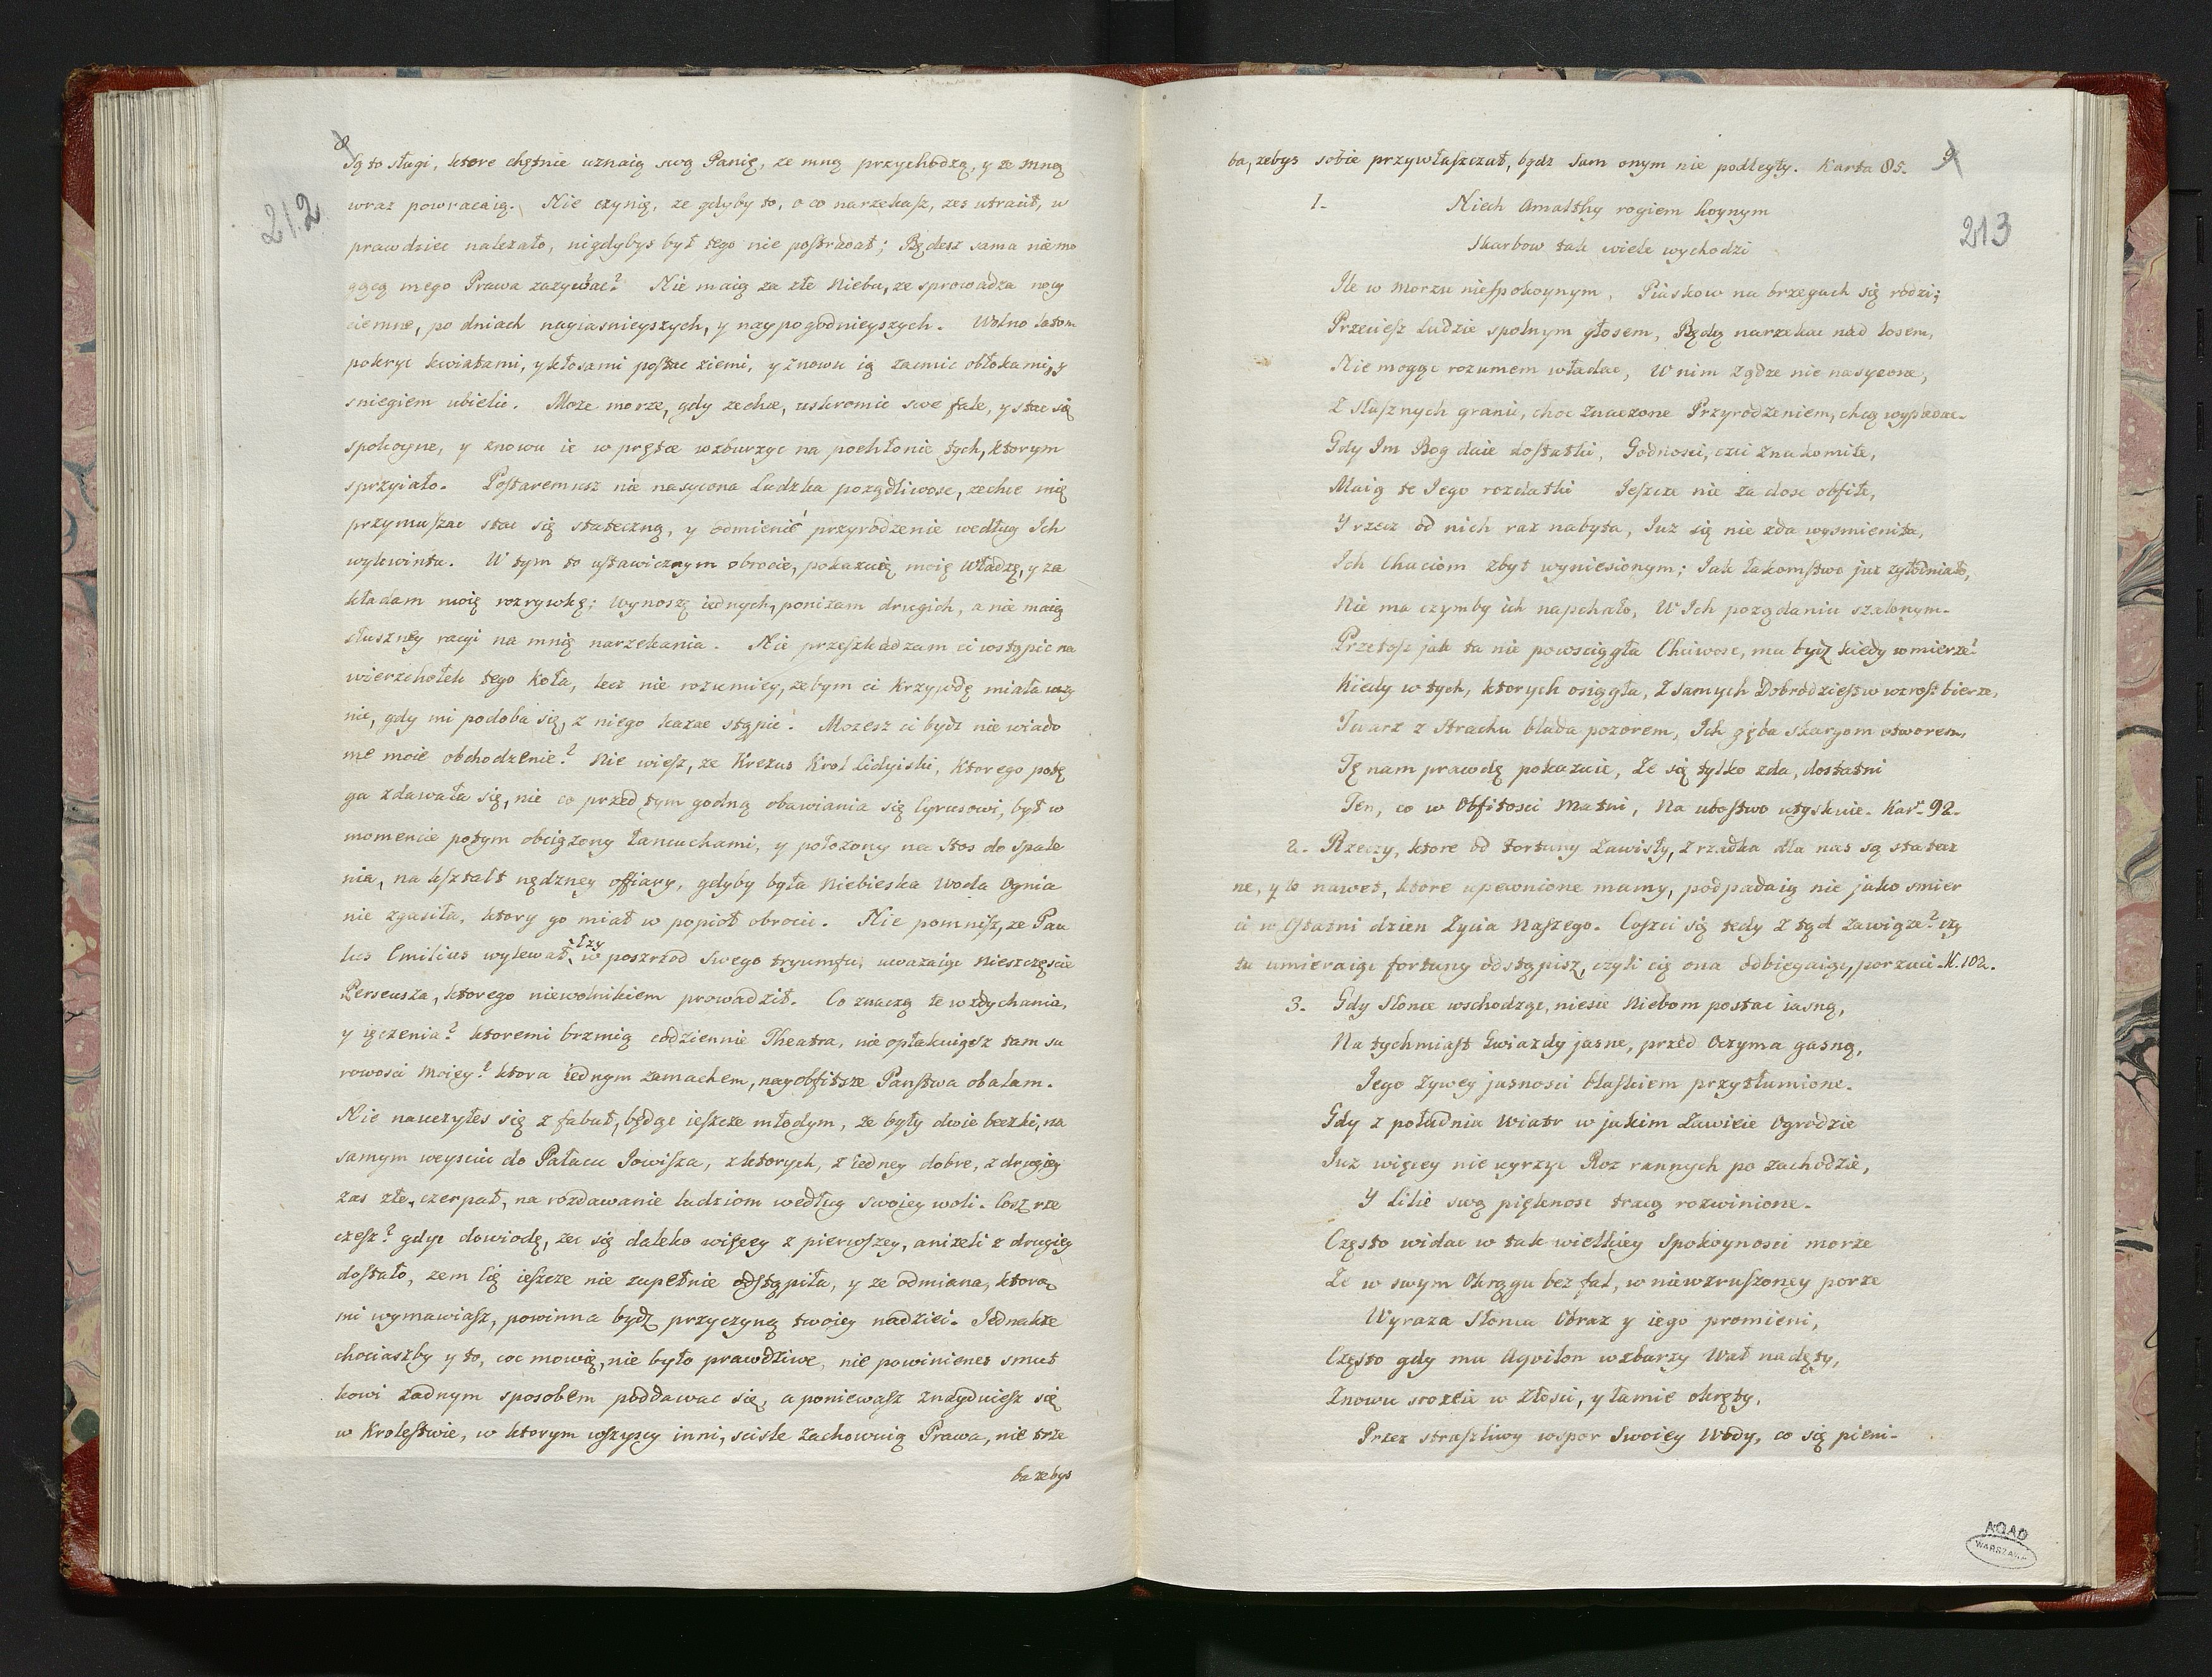 8
212
Są to sługi, ktore chętnie uznaią swą Panię, ze mną przychodzą, y ze mną
wraz powracaią. Nie czynię, ze gdyby to, o co narzekasz, zes utracił, w
prawdziec nalezało, nigdybys był tego nie postradał; Będesz sama niemo
gącą mego Prawa zazywac? Nie maią za złe Niebu, ze sprowadza nocy
ciemne, po dniach nayiasnieyszych, y naypogodnieyszych. Wolno latom
pokryc kwiatami, y kłosami postac ziemi, y znowu ią zacmic obłokami, y
sniegiem ubielic. Moze morze, gdy zechce, uskromic swe fale, y stac się
spokoyne, y znowu ie w prętce wzburzyc na pochłonie tych, ktorym
sprzyiało. Postaremusz nie nasycona Ludzka poządliwosc, zechce mię
przymuszac stac się stateczną, y odmienić przyrodzenie według Ich
wykwintu. W tym to ustawicznym obrocie, pokazuię moię Władzę, y za
kładam moię rozrywkę; wynoszę iednych, ponizam drugich, a nie maią
słuszney racyi na mnię narzekania. Nie przeszkadzam ci wstąpic na
wierzchołek tego koła, lecz nie rozumiey, zebym ci krzywdę miała uczy
nie, gdy mi podoba się, z niego kazac stąpic. Mozesz ci bydz nie wiado
me moie obchodzenie? Nie wiesz, ze Krezus Krol Lidyiski, ktorego potę
ga zdawała się, nie co przed tym godną obawiania się Cyrusowi, był w
momencie potym obciązony łancuchami, y połozony na Stos do spale
nia, na kształt nędzney offiary, gdyby była Niebieska Woda Ognia
nie zgasiła, ktory go miał w popioł obrocic. Nie pomnisz, ze Pau
lus Emilius wylewał łzy w poszrzod swego tryumfu, uwazaiąc nieszczęscie
Perseusza, ktorego niewolnikiem prowadził. Co znaczą te wzdychania,
y ięczenia? ktoremi brzmią codziennie Theatra, nie opłakuigesz tam su
rowosci moiey? ktora iednym zamachem, nayobfitsze Panstwa obalam.
Nie nauczyłes się z fabuł, będąc ieszcze młodym, ze były dwie beczki, na
samym weysciu do Pałacu Jowisza, z ktorych, z iedney dobre, z drugiey
zas złe, czerpał, na rozdawanie ludziom według swoiey woli. Cosz rze
czesz? gdyc dowiodę, zec się daleko więcey z pierwszey, anizeli z drugiey
dostało, zem cię ieszcze nie zupełnie odstąpiła, y ze odmiana, ktorą
mi wymawiasz, powinna bydz przyczyną twoiey nadziei. Jednakze
chociaszby y to, coc mowię, nie było prawdziwe, nie powinienes smut
kowi zadnym sposobem poddawac się, a poniewasz znayduiesz się
w Krolestwie, w ktorym wszyscy inni, scisle zachowuią Prawa, nie trze
ba zebys
9
213
ba, zebys sobie przywłaszczał, bydz sam onym nie podległy. Karta 85.
1. Niech Amalthy rogiem hoynym
Skarbow tak wiele wychodzi
Ile w morzu niespokoynym, Piaskow na brzegach się rodzi;
Przeciesz ludzie spolnym głosem, Będą narzekac nad losem,
Nie mogąc rozumem władac, W nim ządze nie nasycone,
Z słusznych granic, choc znaczone Przyrodzeniem, chcą wypadac.
Gdy Im Bog daie dostatki, Godnosci, czci znakomite,
Maią te Jego rozdatki Jeszcze nie za dosc obfite,
Y rzecz od nich raz nabyta, Juz się nie zda wysmienita,
Ich Chuciom zbyt wyniesionym; Jak łakomstwo juz zgłodniało,
Nie ma czymby ich napchało, W Ich poządaniu szalonym.
Przetosz jak ta nie powsciągła Chciwosc, ma bydz kiedy w mierze?
Kiedy w tych, ktorych osiągła, Z samych Dobrodzieystw wzrost bierze,
Twarz z strachu blada pozorem, Ich gęba skargom otworem,
Tę nam prawdę pokazuie, Ze się tylko zda, dostatni
Ten, co w Obfitosci Matni, Na ubostwo utyskuie. Kar: 92.
2. Rzeczy, ktore od fortuny zawisły, z rzadka dla nas są statecz
ne, y te nawet, ktore upewnione mamy, podpadaią nie jako smier
ci w Ostatni dzien Zycia Naszego. Coszci się tedy z tąd zawiąze? czy
tu umieraiąc fortuny odstąpisz, czyli cię ona odbiegaiąc, porzuci. K. 102.
3. Gdy Słonce wschodząc, niesie Niebom postac iasną,
Na tychmiast Gwiazdy jasne, przed Oczyma gasną,
Jego Zywey jasnosci blaskiem przytłumione.
Gdy z południa Wiatr w jakim Zawieie Ogrodzie
Juz więcey nie uyrzyc Roz rannych po zachodzie,
Y Lilie swą pięknosc tracą rozwinione.
Często widac w tak wielkiey Spokoynosci morze
Ze w swym Okręgu bez fal, w niewzruszoney porze
Wyraza Słonca Obraz y iego promieni,
Często gdy mu Aqvilon wzburzy Wał nadęty,
Znowu srozeie w złosci, y łamie okręty,
Przez straszliwy wspor Swoiey Wody, co się pieni.
AGAD
WARSZAWA